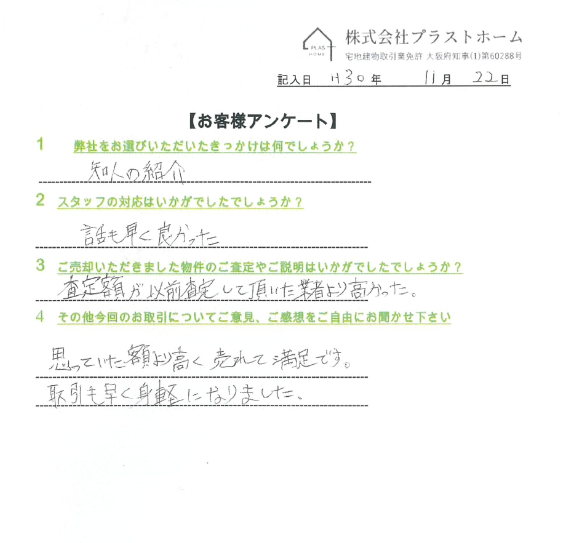 PLAS
HOME
株式会社プラストホーム
宅地建物取引業免許 大阪府知事(1)第60288号
記入日 H30年 11月 22日
【お客様アンケート】
1 弊社をお選びいただいたきっかけは何でしょうか？
知人の紹介
2 スタッフの対応はいかがでしたでしょうか？
話も早く良かった
3 ご売却いただきました物件のご査定やご説明はいかがでしたでしょうか？
査定額が以前査定して頂いた業者より高かった。
4 その他今回のお取引についてご意見、ご感想をご自由にお聞かせ下さい
思っていた額より高く売れて満足です。
取引も早く身軽になりました。